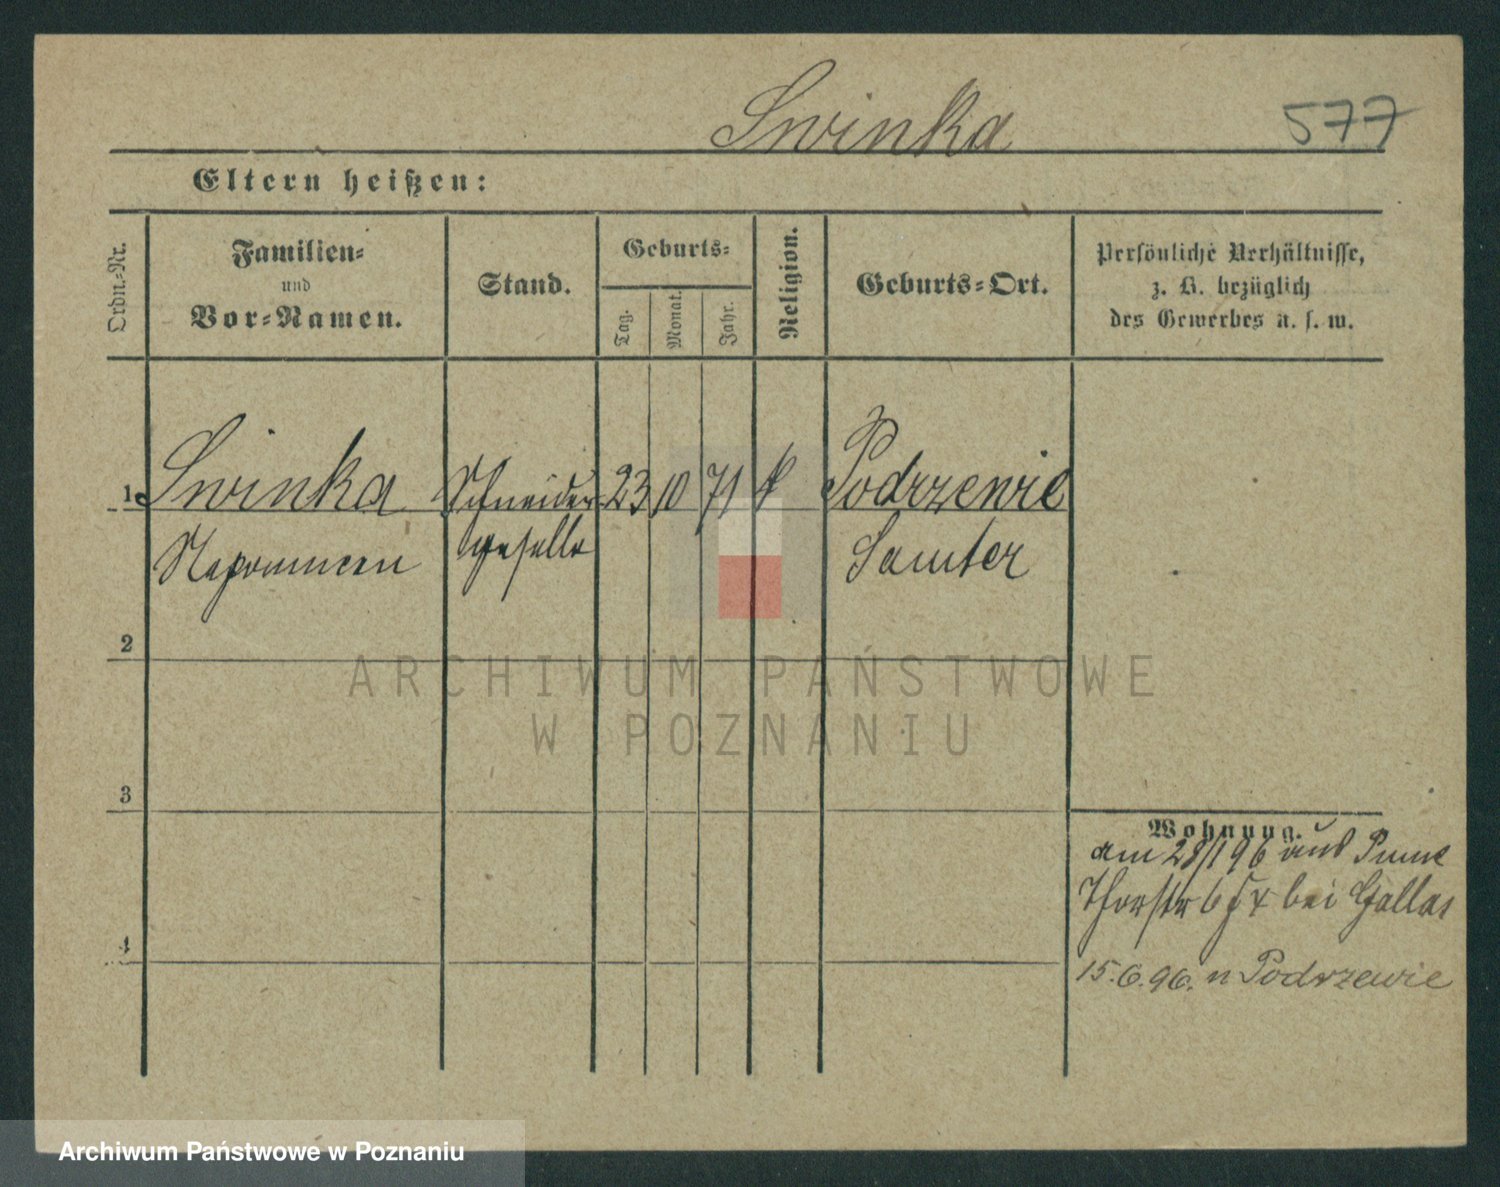 Swinka 577
Eltern heißen:
Ordn.-Nr.
Familien-
und
Vor-Namen.
Stand.
Geburts-
Tag.
Monat.
Jahr.
Religion.
Geburts-Ort.
Persönliche Verhältnisse,
z. B. bezüglich
des Gewerbes u. s. w.
1 Swinka Schneider- 23 10 71 k Podrzewie
Nepomucen geselle Samter
2
3
4
Wohnung.
am 28/1 96 aus Pinne
Thorstr bei Gallas
15.6.96. n Podrzewie
ARCHIWUM PAŃSTWOWE
W POZNANIU
Archiwum Państwowe w Poznaniu